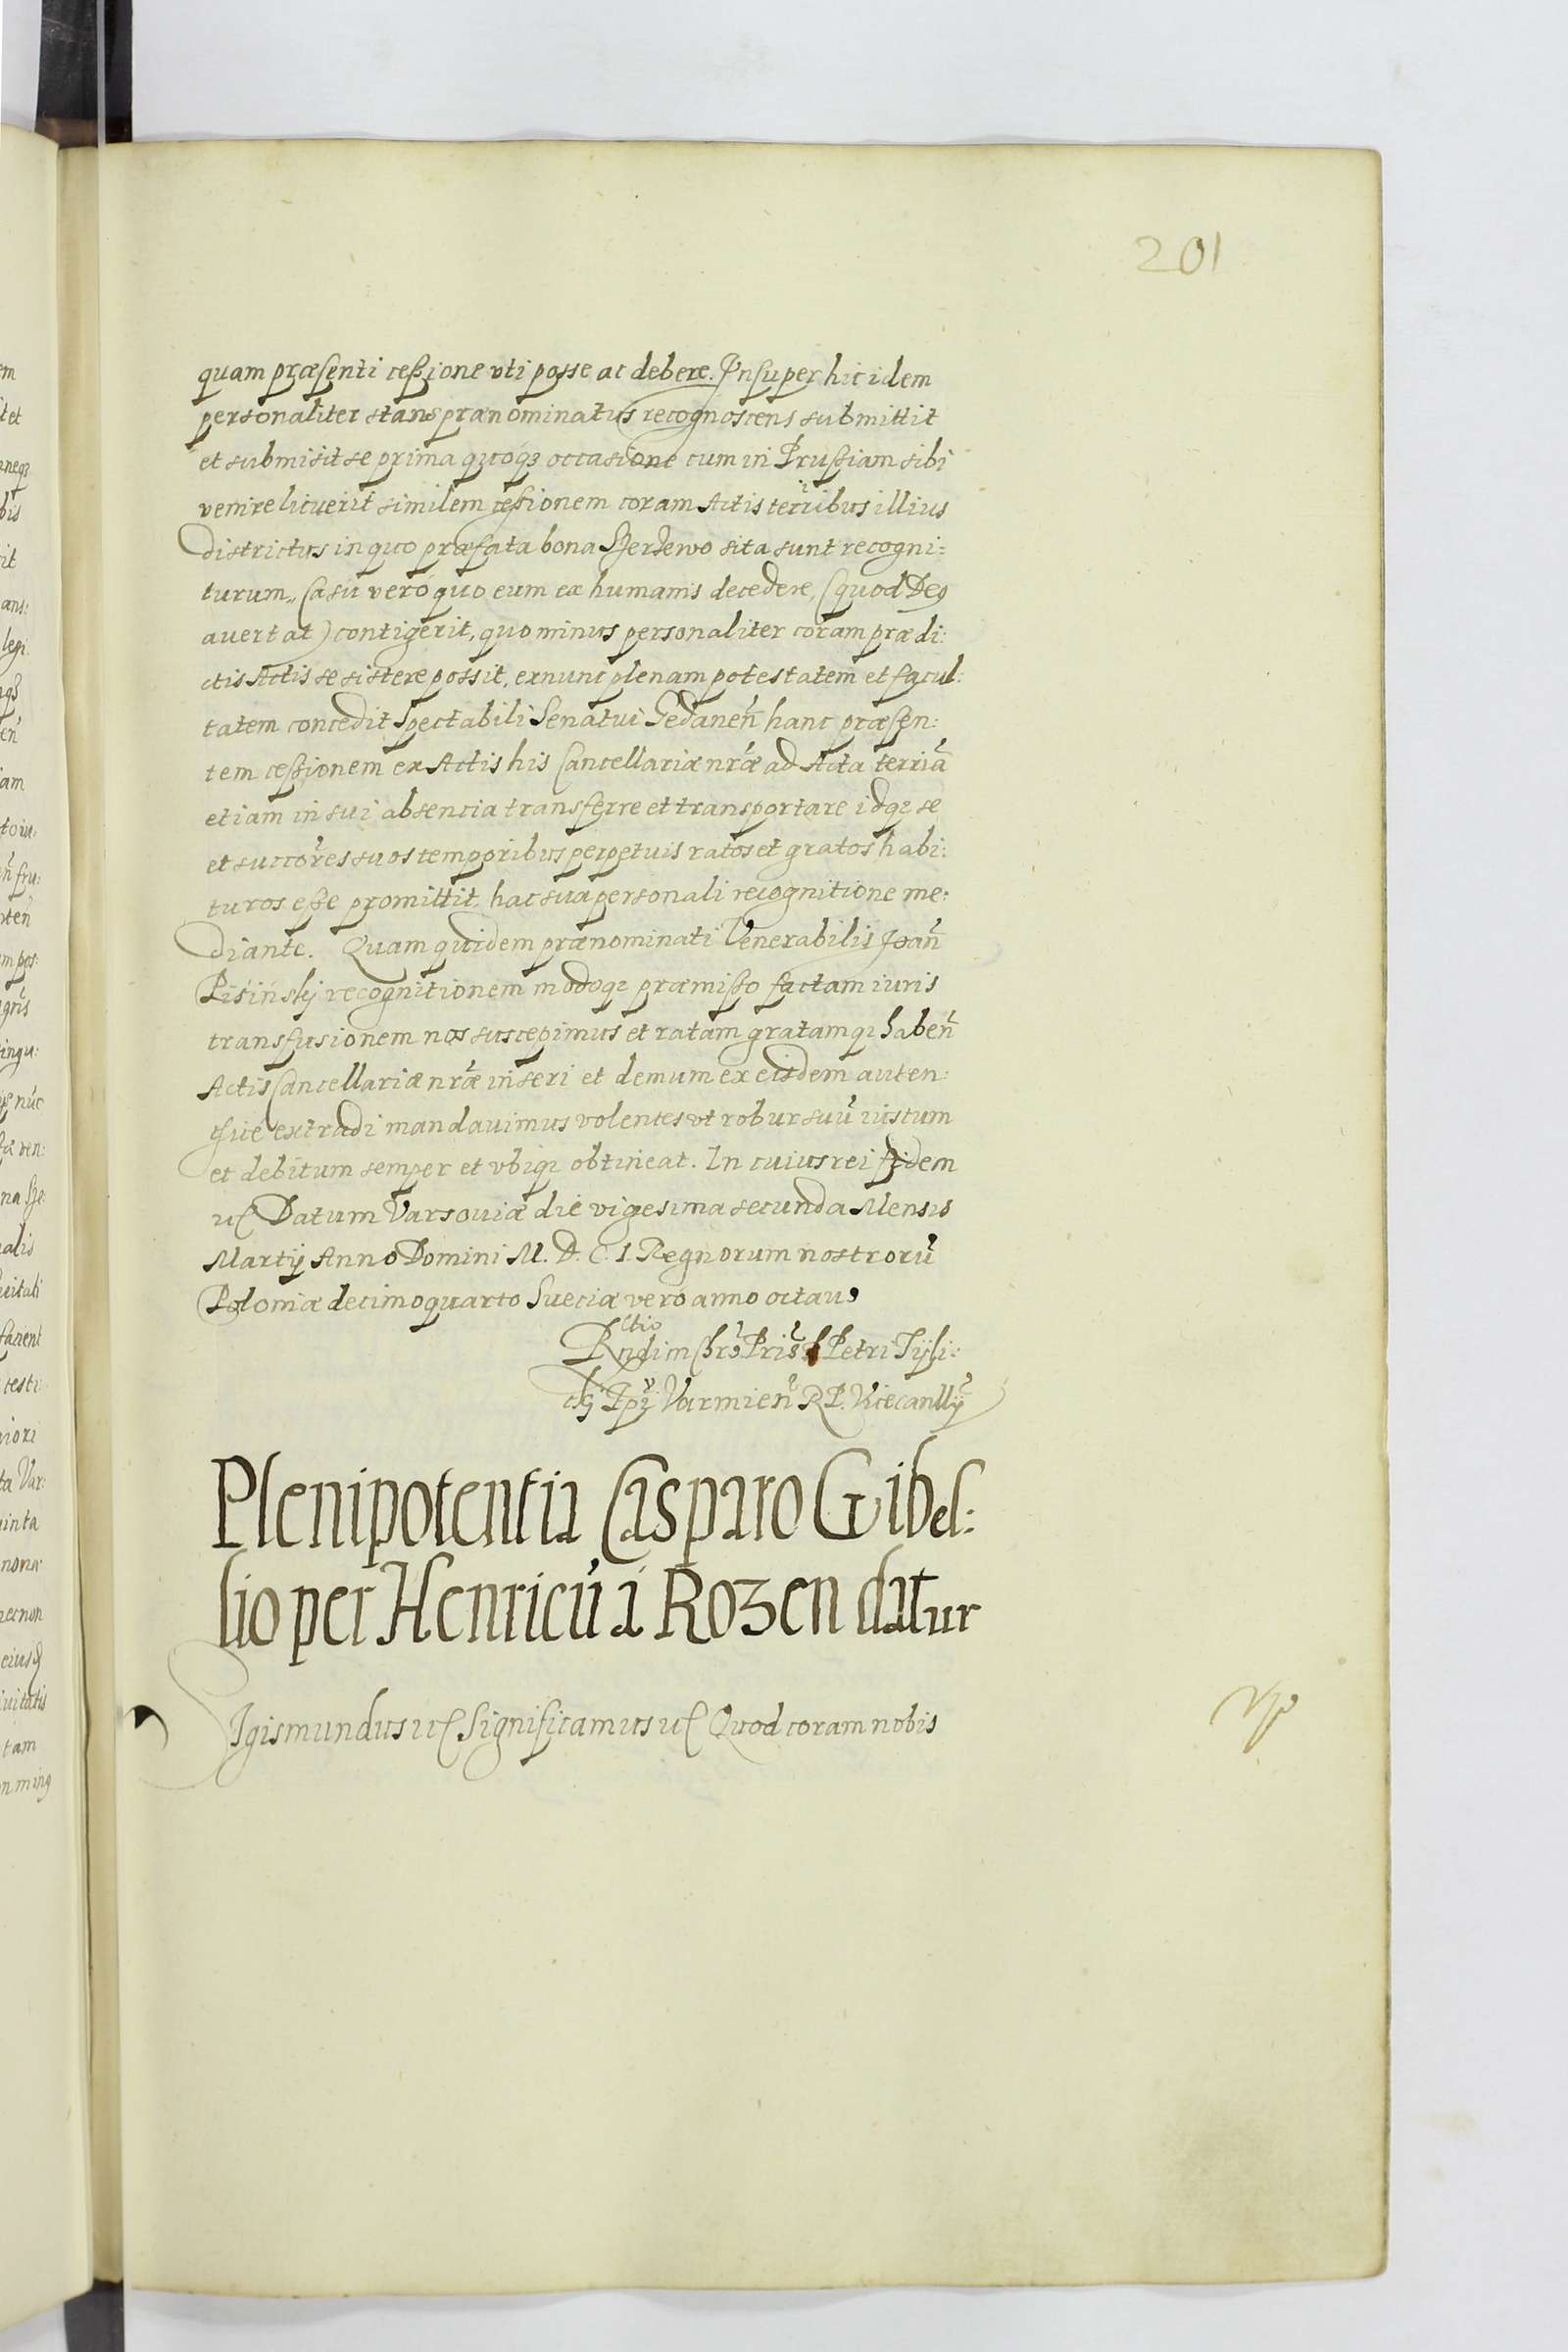 201
quam præsenti cessione vti posse ac debere. Insuper hic idem
personaliter stans prænominatus recognoscens submittit
et submisit se prima quóq3 occasione cum in Prussiam sibi
venire licuerit similem cessionem coram Actis terribus illius
districtus in quo præfata bona sita sunt recogni:
turum,, Casu veró quo eum ex humanis decedere, (quod Deꝰ
auertat) contigerit, quo minus personaliter coram prædi:
ctis Actis se sistere possit, ex nunc plenam potestatem et facul:
tatem concedit Spectabili Senatui Gedaneñ hanc præsen:
tem cessionem ex Actis his Cancellariæ nr̃æ ad Acta terria
etiam in sui absencia transferre et transportare idq3 se
et succor̃es suos temporibus perpetuis ratos et gratos habi:
turos esse promittit, hac sua personali recognitione me:
diante. Quam quidem prænominati Venerabilis Joañ
Pisinskj recognitionem modoq3 præmisso factam iuris
transfusionem nos suscepimus et ratam gratamq3 habeñ
Actis Cancellariæ nr̃æ inseri et demum ex eisdem auten:
tice extradi mandauimus volentes vt robur suũ iustum
et debitum semper et vbiq3 obtineat. In cuius rei fidem
Datum Varsouiæ die vigesima secunda Mensis
Martij Anno Domini M. D. C. I. Regnorum nostrorũ
Poloniæ decimoquarto Sueciæ vero anno octauo
Rctio Rndi in Chrõ Pris Petri Tyli:
Varmieñ R P. Vicecanllÿ
Plenipotentia Casparo Gibel:
lio per Henricũ à Rozen datur
Sigismundus Significamus Quod coram nobis